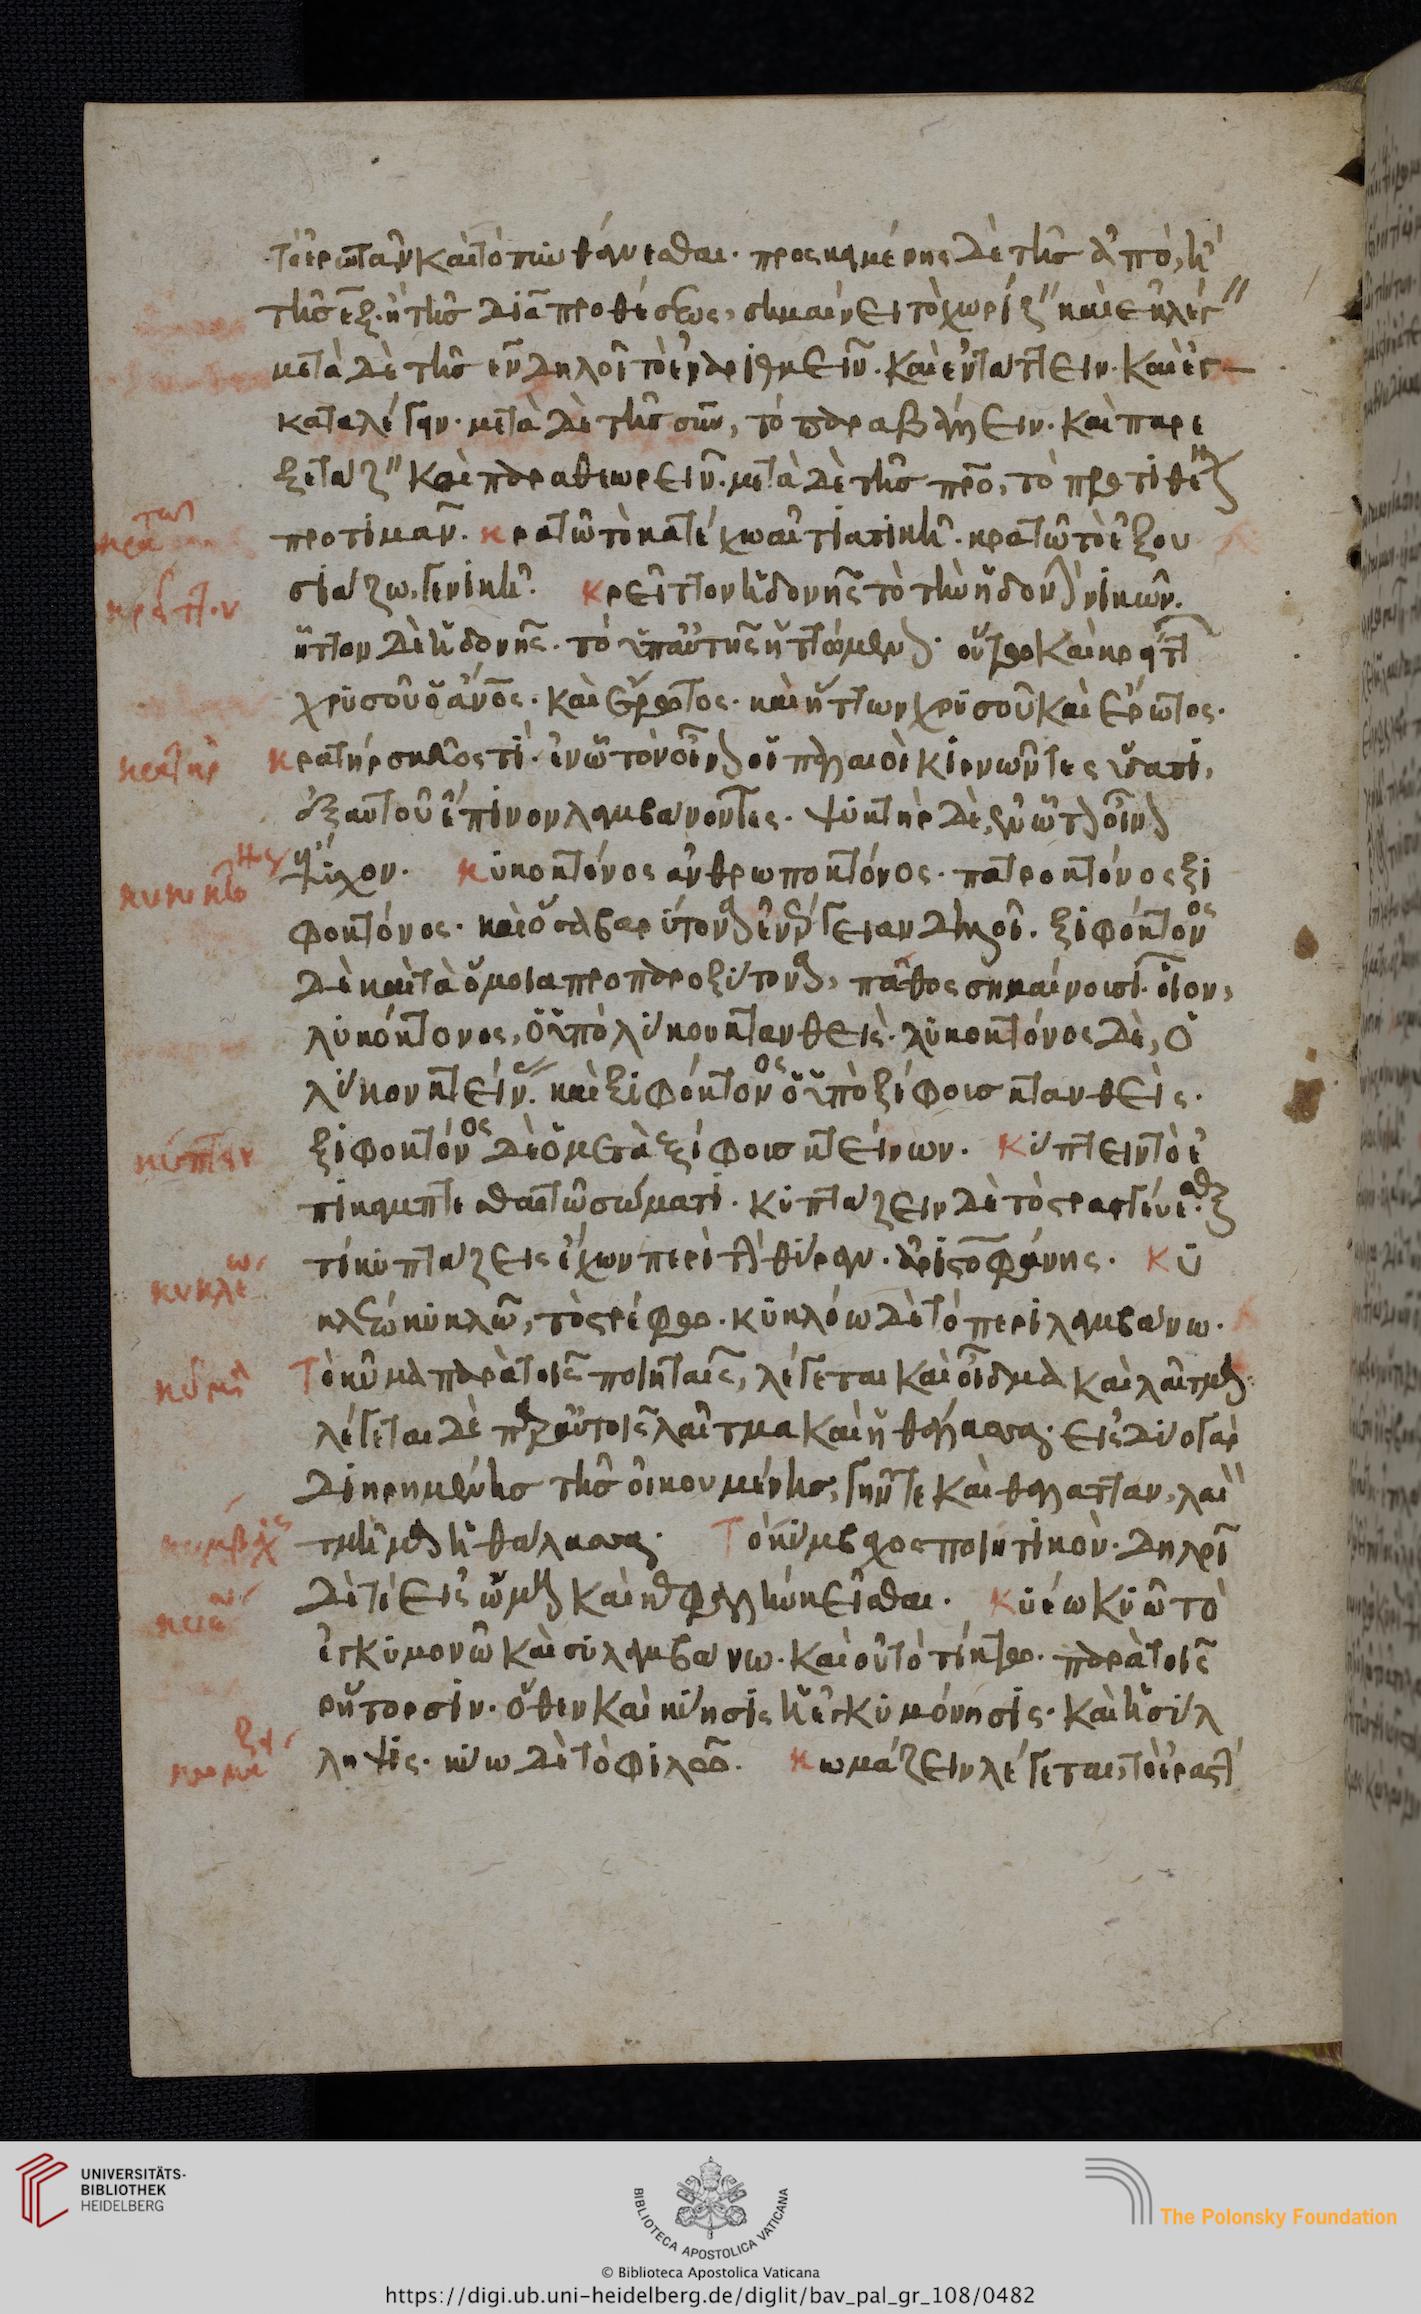 τὸ ἐρωτᾶν καὶ τὸ πυνθάνεσθαι. προσκειμένης δὲ τῆς ἀπὸ, ἢ
τῆς ἐξ. ἢ τῆς διὰ προθέσεως, σημαίνει τὸ χωρίζειν καὶ ἐκλέγειν
μετὰ δὲ τῆς ἐν δηλοῖ τὸ ἐναριθμεῖν. καὶ ἐντάττειν. καὶ ἐγ
καταλέγειν. μετὰ δὲ τῆς σὺν, τὸ παραβάλλειν. καὶ παρε
ξετάζειν καὶ παραθεωρεῖν. μετὰ δὲ τῆς πρὸ, τὸ προτιθέναι
προτιμᾶν. κρατῶ τὸ κατέχω αἰτιατικῇ. κρατῶ τὸ ἐξου
σιάζω, γενικῇ. κρεῖττον ἡδονῆς τὸ τὴν ἡδονὴν νικῶν.
ἧττον δὲ ἡδονῆς. τὸ ὑπ' αὐτῆς ἡττώμενον. οὕτω καὶ κρείττων
χρυσοῦ ὁ ἄνος. καὶ ἔρωτος. καὶ ἥττων χρυσοῦ καὶ ἔρωτος.
κρατὴρ σκεῦός τι. ἐν ᾧ τὸν οἶνον οἱ παλαιοὶ κιρνῶντες ὕδατι,
ἐξ αὐτοῦ ἔπινον λαμβάνοντες. ψυκτὴρ δὲ, ἐν ᾧ τὸν οἶνον
ἔψυχον. κυνοκτόνος ἀνθρωποκτόνος. πατροκτόνος ξι
φοκτόνος. καὶ ὅσα βαρύτονα ἐνέργειαν δηλοῖ. ξιφόκτονος
δὲ καὶ τὰ ὅμοια προπαροξύτονα, πάθος σημαίνουσι. οἷον,
λυκόκτονος, ὁ ὑπὸ λύκου κτανθείς. λυκοκτόνος δὲ, ὁ
λύκον κτείνων. καὶ ξιφόκτονος ὁ ὑπὸ ξίφους κτανθεὶς.
ξιφοκτόνος δὲ ὁ μετὰ ξίφους κτείνων. κύπτειν τὸ ἐ
πικάμπτεσθαι τῶ σώματι. κυπτάζειν δὲ τὸ στραγγεύεσθαι.
τί κυπτάζεις ἔχων περὶ τὴν θύραν. ἀριστοφάνης. κυ
κλέω κυκλῶ, τὸ στρέφω. κυκλόω δὲ τὸ περιλαμβάνω.
Τὸ κῦμα παρὰ τοῖς ποιηταῖς, λέγεται καὶ οἶδμα καὶ λαῖτμα.
λέγεται δὲ παρ' αὐτοῖς λαῖτμα καὶ ἡ θάλασσα. εἰς δύο γὰρ
διῃρημένης τῆς οἰκουμένης, γῆν τε καὶ θάλατταν, λαῖ
τμα ἡ θάλασσα. Τὸ κύμβαχος ποιητικὸν. δηλοῖ
δὲ τὸ εἰς ὦμον καὶ κεφαλὴν κεῖσθαι. κυέω κυῶ τὸ
ἐγκυμονῶ καὶ συλλαμβάνω. καὶ οὐ τὸ τίκτω. παρὰ τοῖς
ῥήτορσιν. ὅθεν καὶ κύησις ἡ ἐγκυμόνησις. καὶ ἡ σύλ
ληψις. κύω δὲ τὸ φιλῶ. κωμάζειν λέγεται, τὸ ἐραστ
κρατῶ
κρεῖττον
κρατὴρ
κυνοκτόνος
κύπτειν
κυκλέω
κῦμα
κύμβαχος
κυέω
κωμάζειν
UNIVERSITÄTS-
BIBLIOTHEK
HEIDELBERG
BIBLIOTECA APOSTOLICA VATICANA
The Polonsky Foundation
© Biblioteca Apostolica Vaticana
https://digi.ub.uni-heidelberg.de/diglit/bav_pal_gr_108/0482